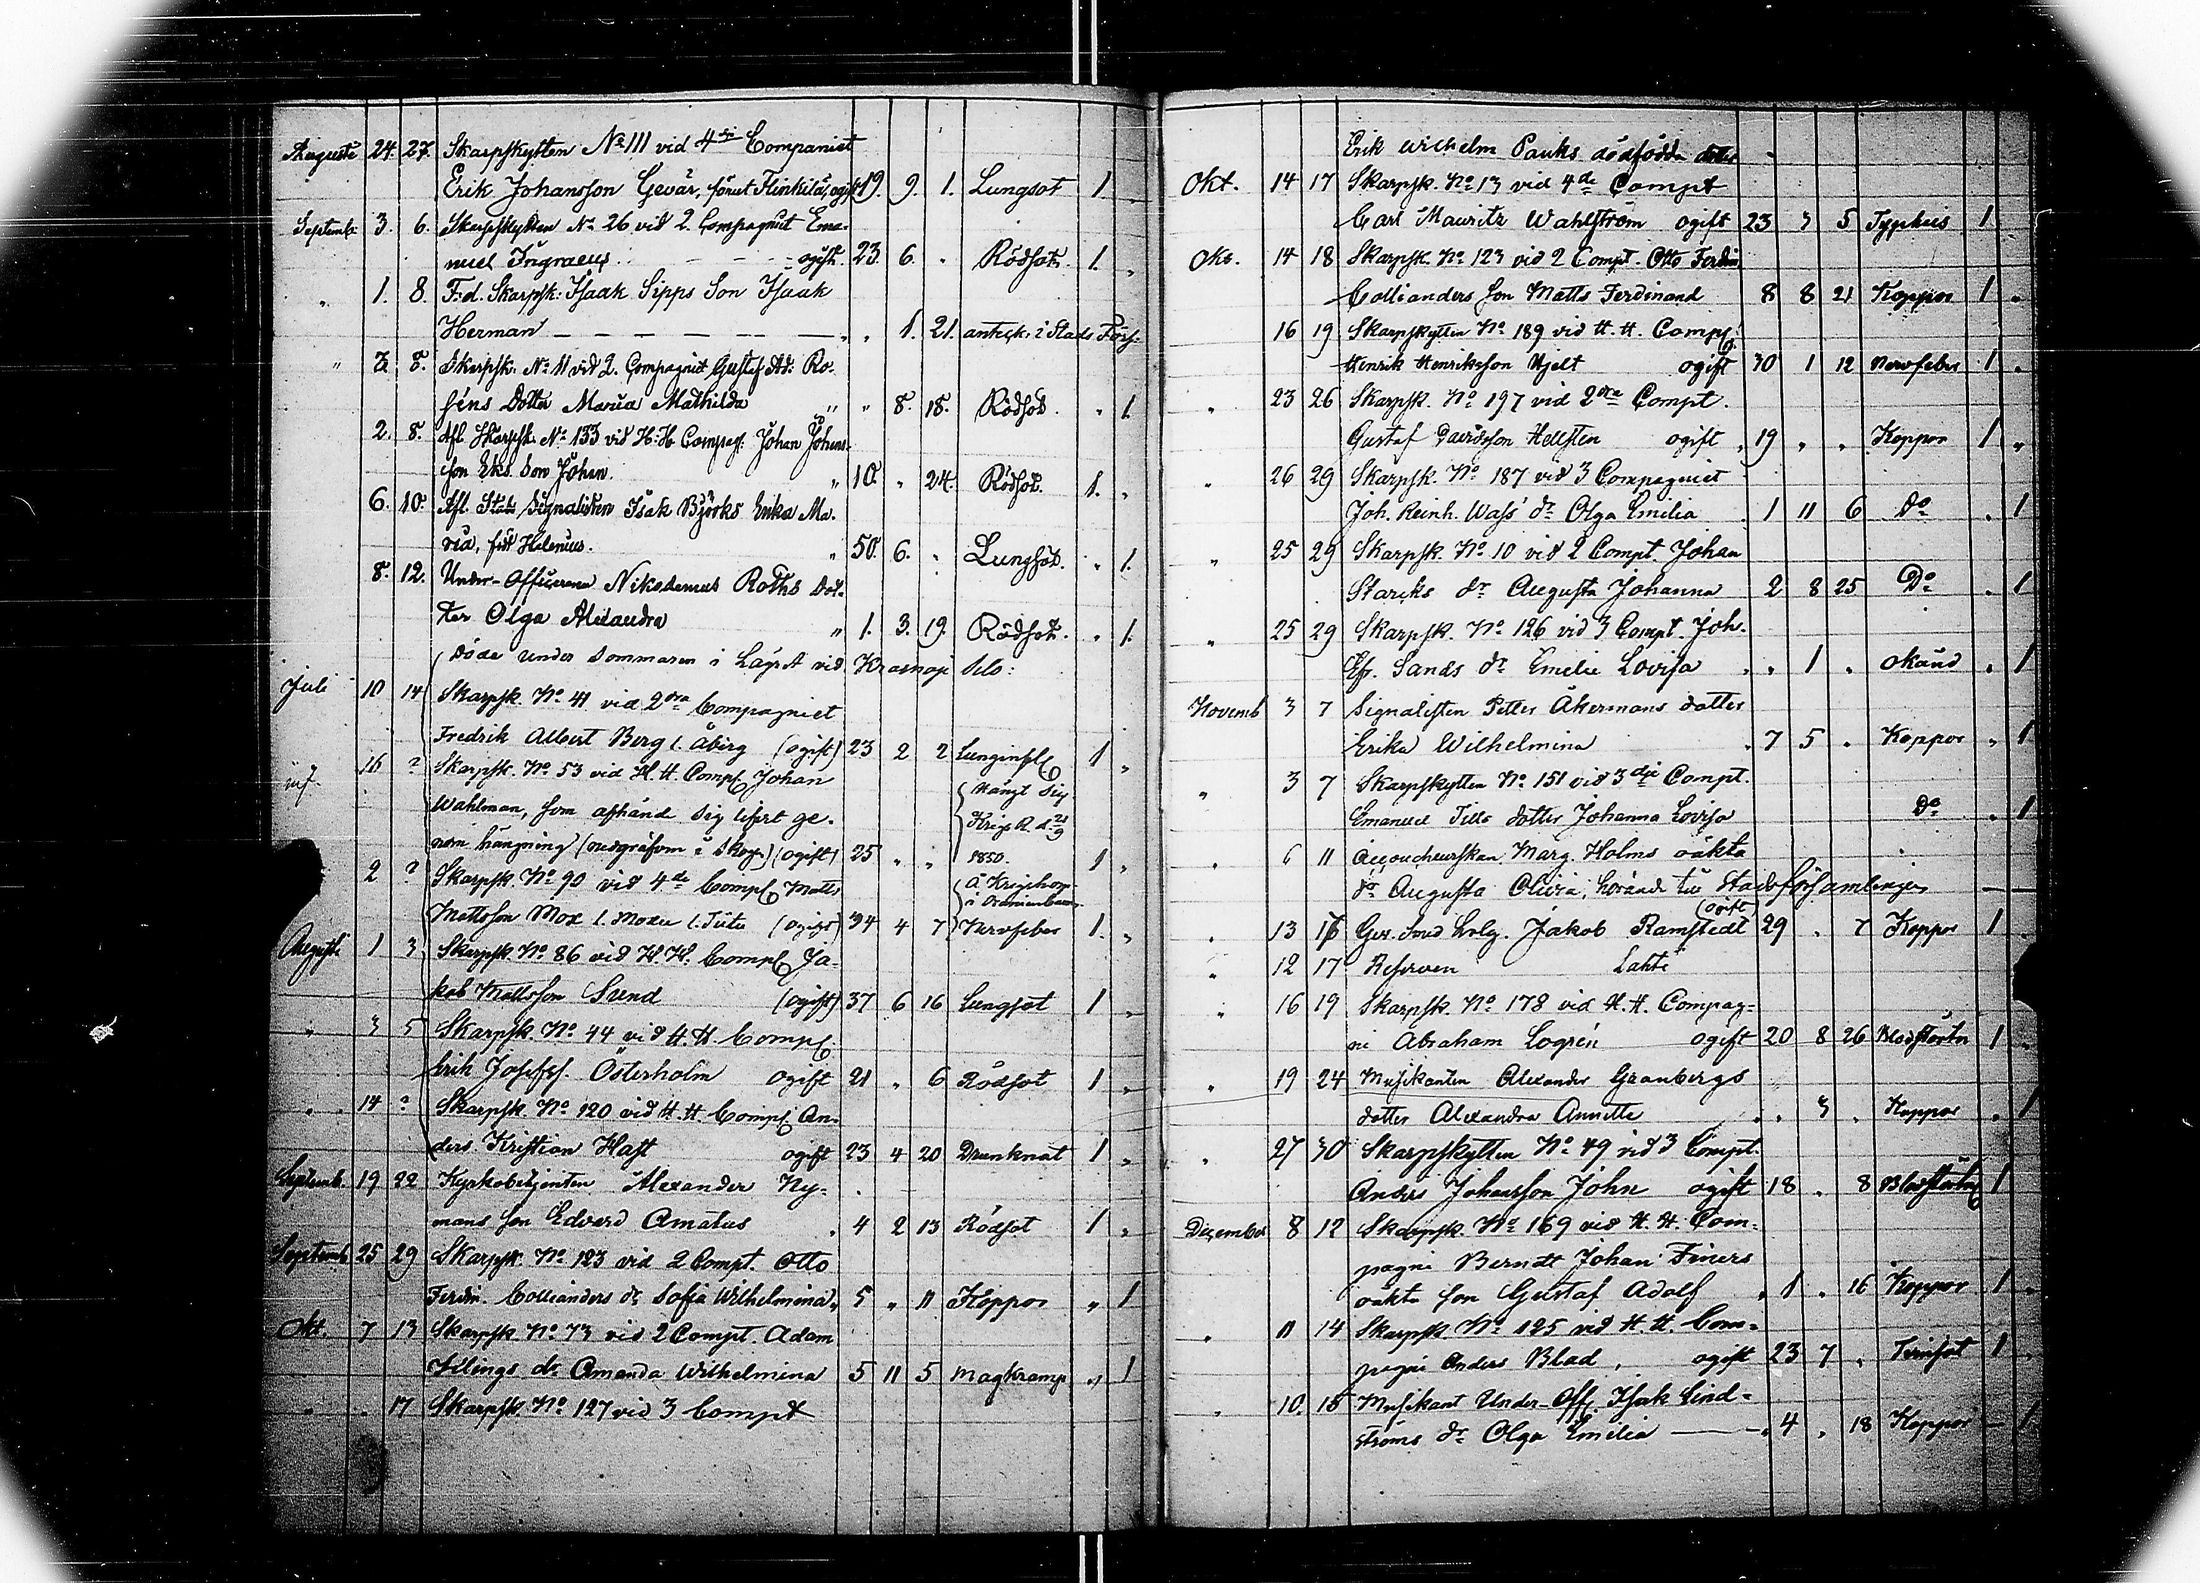 Augusti 24. 27. Skarpskytten No 111 vid 4de Companiet
Erik Johansson Gevär, förut Flinkilä, ogift 19. 9. 1. Lungsot 1.
Septemb. 3. 6. Skarpskytten No 26 vid 2. Compagniet Ema-
nuel Ingraeus ogift. 23. 6. " Rödsot. 1. "
" 1. 8. F.d. Skarpsk: Isaak Sipps Son Isaak
Herman " " 1. 21. anteck. i Stads Förs.
" 3. 8. Skarpsk. No 11 vid 2. Compagniet Gustaf Ad: Ro-
séns Dotter Maria Mathilda " " 8. 18. Rödsot. " 1.
2. 8. Afl. Skarpsk. No 133 vid H:H Compag. Johan Johans-
son Eks Son Johan. " 10. " 24. Rödsot. 1. "
6. 10. Afl. Stabs Signalisten Isak Björks Enka Ma-
ria, född Helenius. " 50. 6. " Lungsot. " 1.
8. 12. Under-Officeren Nikodemus Roths Dot-
ter Olga Alexandra " 1. 3. 19. Rödsot. " 1.
Döde under Sommaren i Lägret vid Krasnoje Selo:
Juli 10 14 Skarpsk. No 41 vid 2dra Compagniet
Fredrik Albert Berg l. Åberg (ogift) 23 2 2 Lunginfl 1 "
16 ? Skarpsk. No 53 vid H.H. Comp Johan
Wahlman, som afhände sig lifvet ge- Hängt Sig
Krigs R. d. 21/9
nom hängning (nedgräfven i Skog.) (ogift) 25 " " 1850. 1 "
2 ? Skarpsk. No 90 vid 4de Comp Matts Å Krigshosp
i Oranienbaum
Mattsson Mox l. Moxu l. Tiitu (ogift) 34 4 7 Nervfeber 1. "
Augusti 1 3 Skarpsk. No 86 vid H.H. Comp Ja-
kob Mattsson Sund (ogift) 37 6 16 Lungsot 1 "
" 3 5 Skarpsk. No 44 vid H.H. Comp
Erik Josefss. Österholm ogift 21 " 6 Rödsot 1 "
" 14 ? Skarpsk. No 120 vid H.H. Comp An-
ders Kristian Hast ogift 23 4 20 Drunknat 1 "
Septemb. 19 22 Kyrkobetjenten Alexander Ny-
mans son Edvard Amatus " 4 2 13 Rödsot 1 "
Septemb 25 29 Skarpsk. No 123 vid 2 Compt. Otto
Ferdin. Collianders dr Sofia Wilhelmina " 5 " 11 Koppor " 1
Okt. 7 13 Skarpsk. No 73 vid 2 Compt. Adam
Kilings dr Amanda Wilhelmina 5 11 5 Magkramp " 1
" " 17 Skarpsk. No 127 vid 3 Compt
Erik Wilhelm Pauks dödfödda dotter
Okt. 14 17 Skarpsk. No 13 vid 4de Compt
Carl Mauritz Wahlström ogift 23 3 5 Typhus 1
Okt. 14 18 Skarpsk. No 123 vid 2 Compt. Otto Ferdin
Collianders son Matts Ferdinand 8 8 21 Koppor 1 "
16 19 Skarpskytten No 189 vid H.H. Comp.
Henrik Henriksson Hjelt ogift 30 1 12 Nervfeber 1 "
" 23 26 Skarpsk. No 197 vid 2dra Compt.
Gustaf Davidsson Hellsten ogift " 19 " " Koppor 1 "
" 26 29 Skarpsk. No 187 vid 3 Compagniet
Joh. Reinh. Wass' dr Olga Emilia " 1 11 6 Do " 1
" 25 29 Skarpsk. No 10 vid 2 Compt. Johan
Starcks dr Augusta Johanna 2 8 25 Do " 1
" 25 29 Skarpsk. No 126 vid 3 Compt. Joh.
Efr. Sands dr Emelie Lovisa " " 1 " Okänd " 1
Novemb 3 7 Signalisten Petter Åkermans dotter
Erika Wilhelmina " 7 5 " Koppor " 1
" 3 7 Skarpskytten No 151 vid 3dje Compt.
Emanuel Tills dotter Johanna Lovisa Do " 1
" 6 11 Accoucheurskan Marg. Holms oäkta
dr Augusta Olivia, hörande till Stadsförsamlingen
(ogift)
" 13 16 Jakob Ramstedt 29 " 7 Koppor 1
" 12 17 Reserven Lahti
" 16 19 Skarpsk. No 178 vid H.H. Compag-
ni Abraham Logrén ogift 20 8 26 Blodstörtn 1 "
" 19 24 Musikanten Alexander Granbergs
dotter Alexandra Annette " " 3 " Koppor " 1
" 27 30 Skarpskytten No 49 vid 3 Compt.
Anders Johansson John ogift 18 " 8 Blodstörtn 1
December 8 12 Skarpsk. No 169 vid H.H. Com-
pagni Berndt Johan Finers
oäkta son Gustaf Adolf " 1 " 16 Koppor 1 "
" 11 14 Skarpsk. No 125 vid H.H. Com-
pagni Anders Blad, ogift 23 7 " Tvinsot 1
" 10. 15 Musikant Under-Off. Isak Lind-
ströms dr Olga Emilia " 4 " 18 Koppor 1